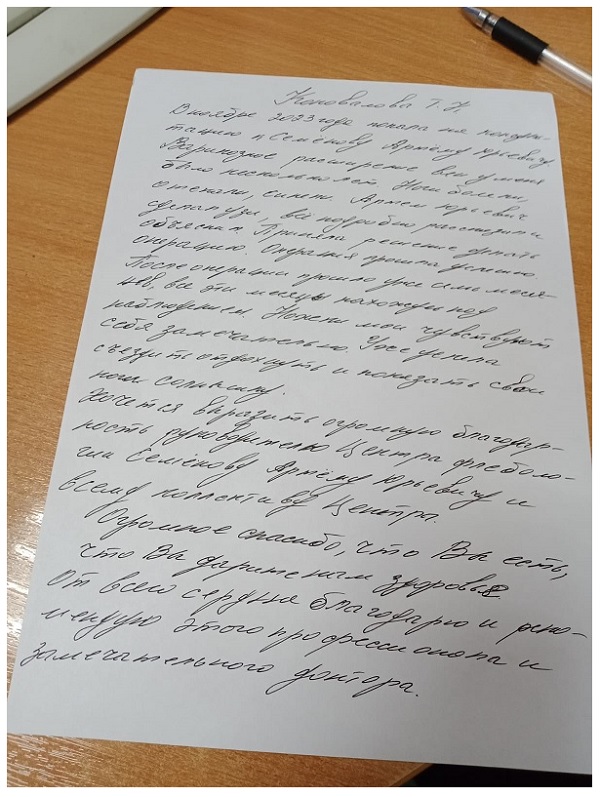 Коновалова Т. Н.
В ноябре 2023 года попала на консуль-
тацию к Семёнову Артёму Юрьевичу
Варикозное расширение вен у меня
было несколько лет. Ноги болели,
отекали, синели. Артем Юрьевич
сделал узи, всё подробно рассказал и
объяснил. Приняла решение делать
операцию. Операция прошла успешно.
После операции прошло уже семь меся-
цев, все эти месяцы нахожусь под
наблюдением. Ножки мои чувствуют
себя замечательно. Уже успела
съездить отдохнуть и показать свои
ноги солнышку.
Хочется выразить огромную благодар-
ность руководителю Центра флеболо-
гии Семёнову Артёму Юрьевичу и
всему коллективу Центра.
Огромное спасибо, что Вы есть,
что Вы дарите нам здоровье
От всего сердца благодарю и реко-
мендую этого профессионала и
замечательного доктора.